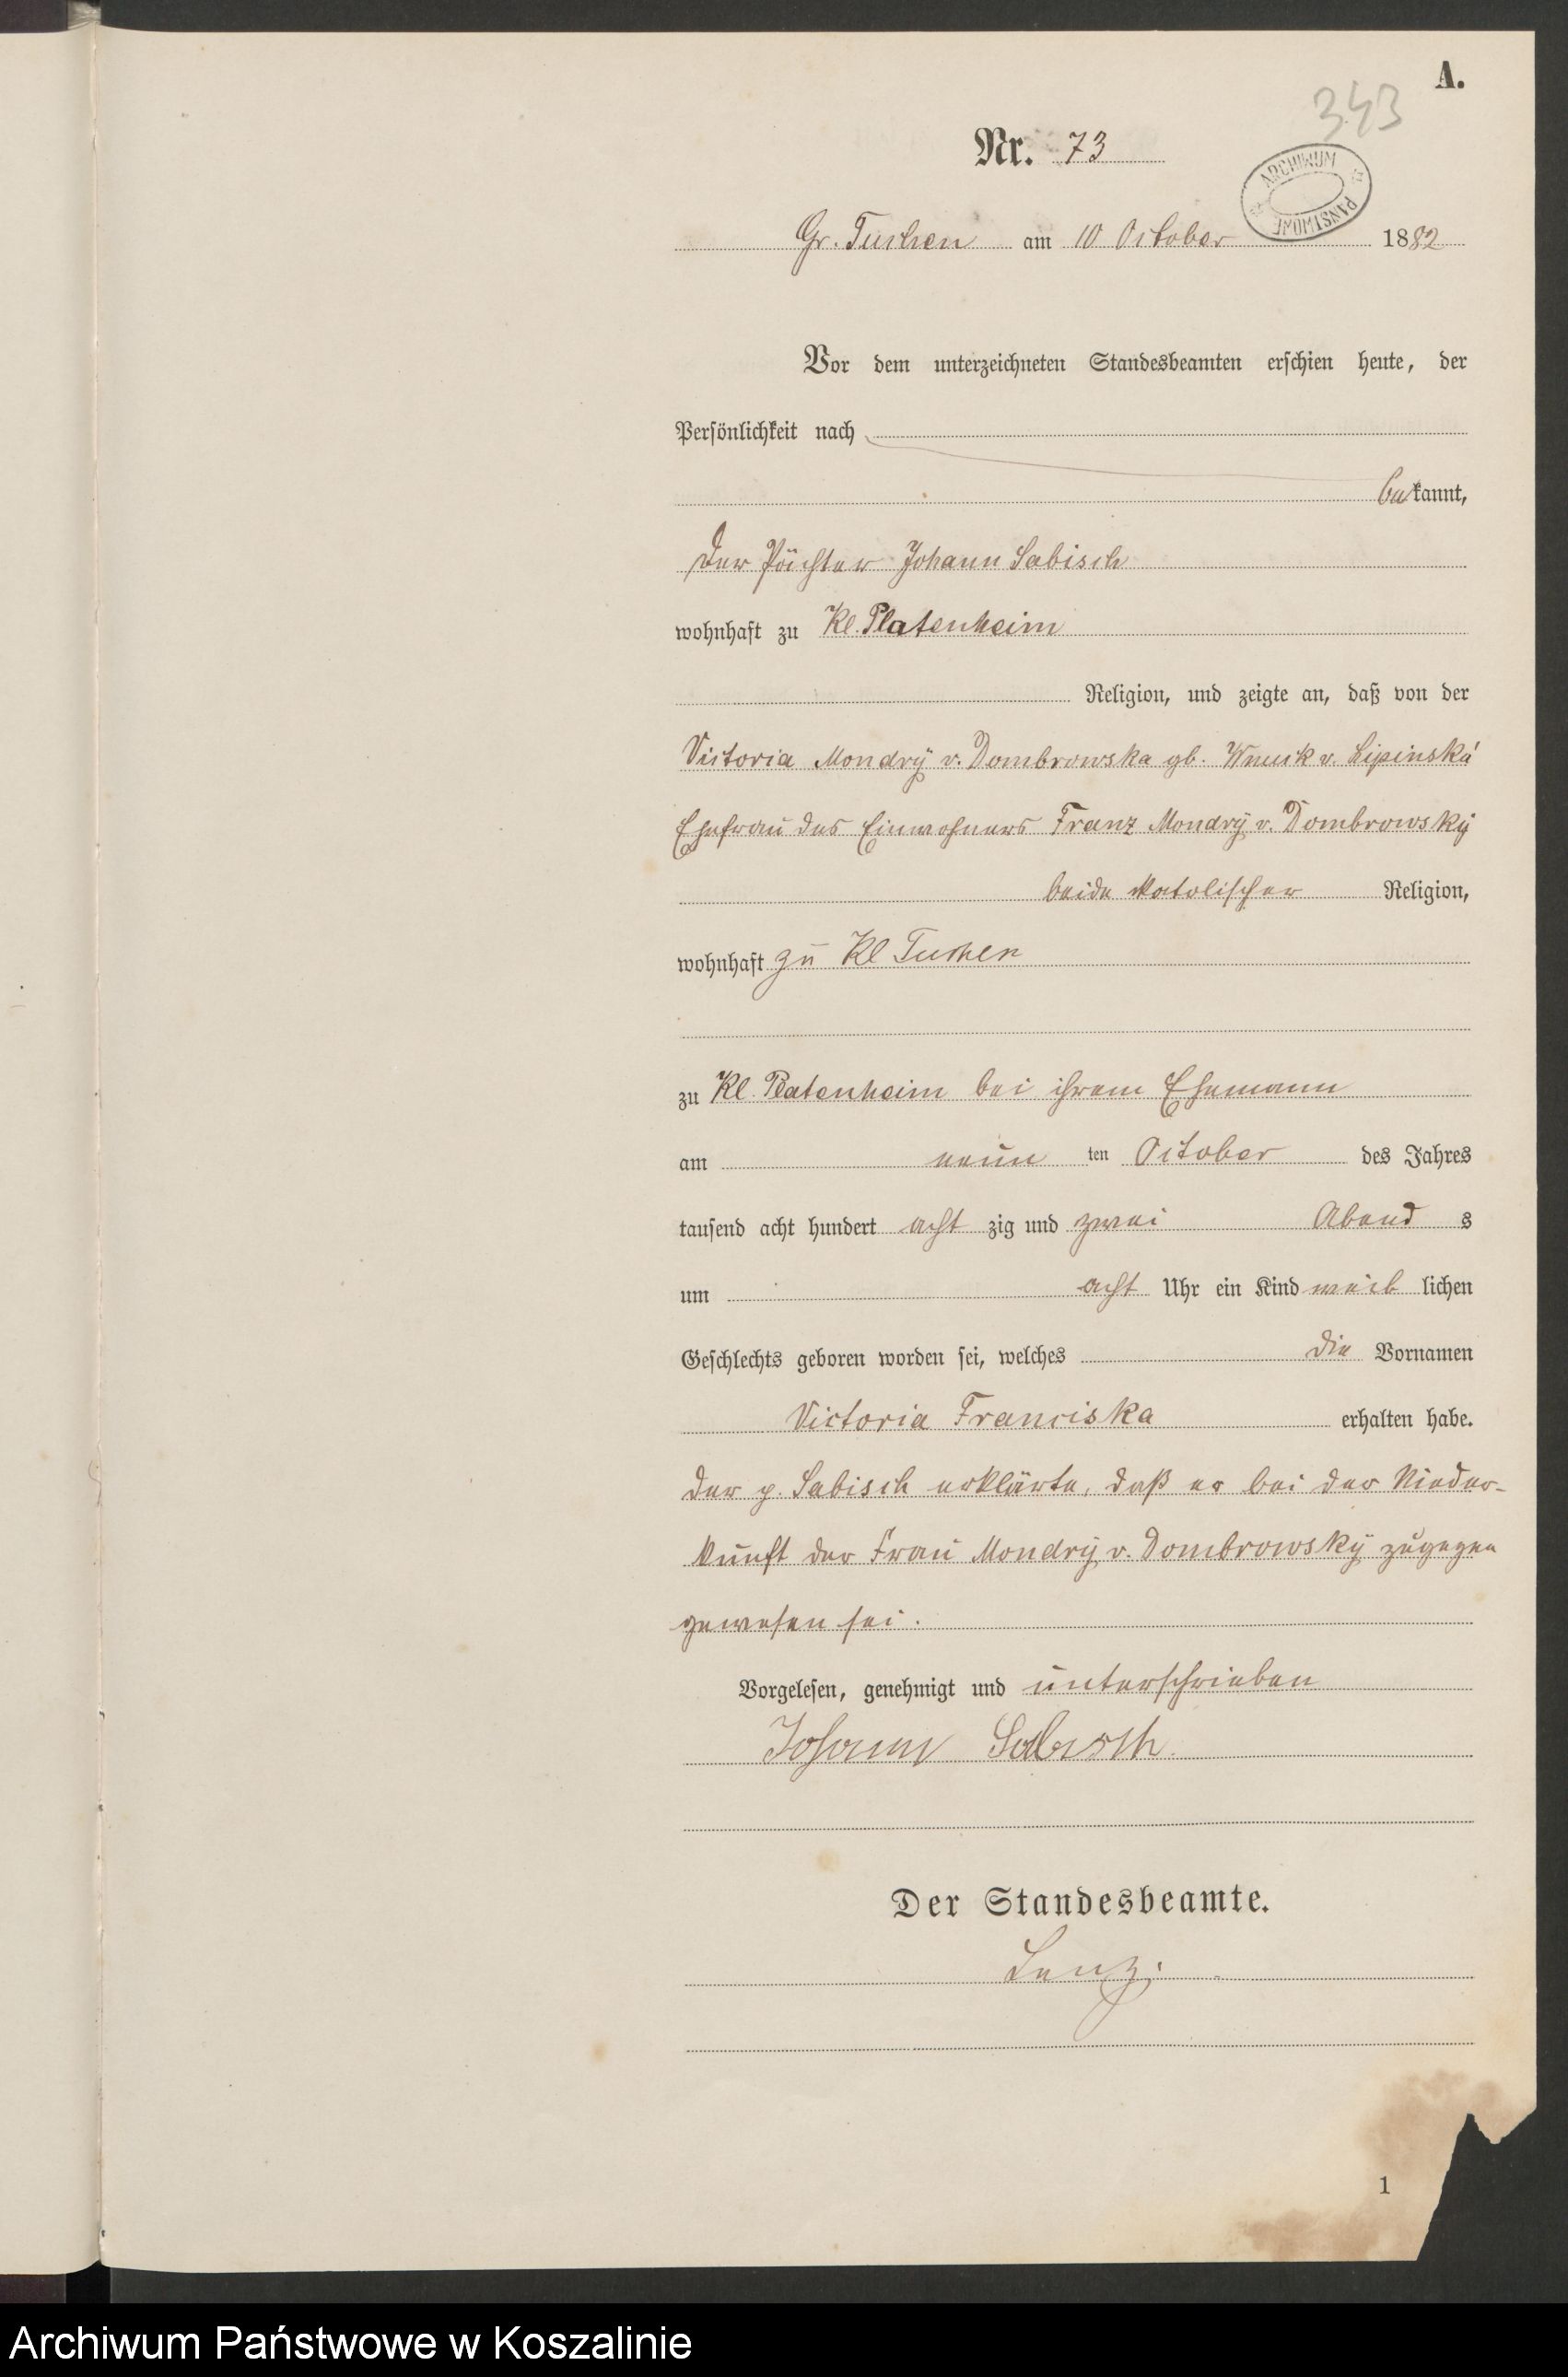 A.
343
Nr. 73
ARCHIWUM PAŃSTWOWE
Gr. Tuchen am 10 October 1882
Vor dem unterzeichneten Standesbeamten erschien heute, der
Persönlichkeit nach
bekannt,
Der Pächter Johann Sabisch
wohnhaft zu Kl. Platenheim
Religion, und zeigte an, daß von der
Victoria Mondry v. Dombrowska gb. Wnuck v. Lipinska
Ehefrau des Einwohners Franz Mondry v. Dombrowsky
beide katolischer Religion,
wohnhaft zu Kl Tuchen
zu Kl. Platenheim bei ihrem Ehemann
am neun ten October des Jahres
tausend acht hundert acht zig und zwei Abend s
um acht Uhr ein Kind weib lichen
Geschlechts geboren worden sei, welches die Vornamen
Victoria Franciska erhalten habe.
Der p. Sabisch erklärte, daß er bei der Nieder-
kunft der Frau Mondry v. Dombrowsky zugegen
gewesen sei.
Vorgelesen, genehmigt und unterschrieben
Johann Sabisch
Der Standesbeamte.
Lenz.
1
Archiwum Państwowe w Koszalinie